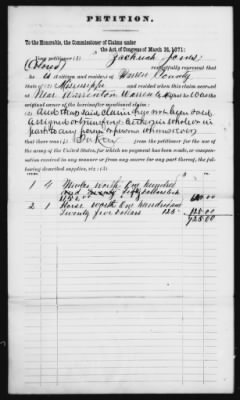 PETITION.
To the Honorable, the Commissioner of Claims under
the Act of Congress of March 3d, 1871:
Your petitioner (1) Zachriah Jones
(Colored) respectfully represent that
he is a citizen and resident of Warren County
State of (2) Mississippi and resided when this claim accrued
Near Warrenton Warren Co
original owner of the hereinafter mentioned claim:
(3) And that said claim has not been sold
assigned or transferred either in whole or in
part to any person or persons whomsoever
that there was (4) taken for the use of
the army of the United States, for which no payment has been made, or compensation
received in any manner or from any source for any part thereof, the following
described supplies, etc; (5)
1 4 Mules worth One hundred
and fifty dollars each
600.00
2 1 Horse worth One hundred and
Twenty five dollars 125– 125.00
725.00